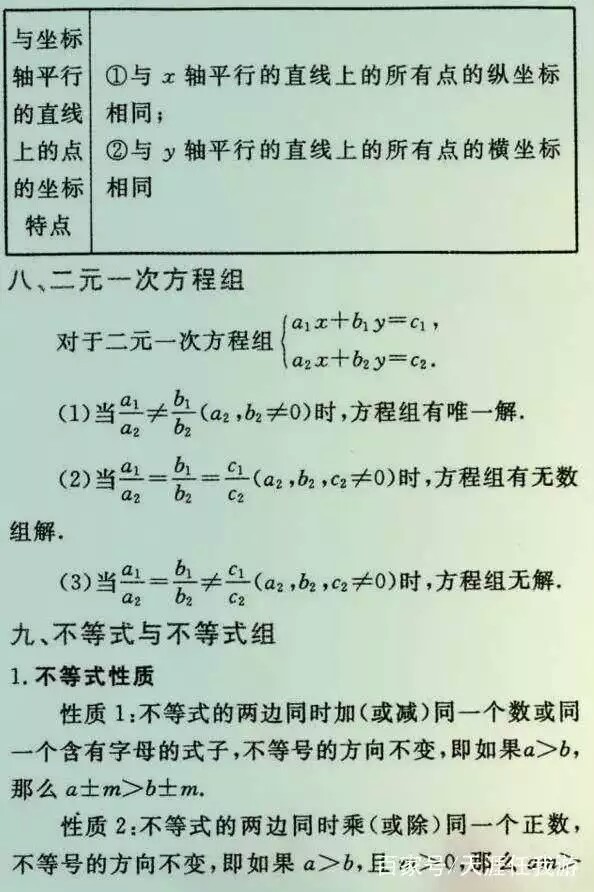 与坐标
轴平行
的直线
上的点
的坐标
特点
①与 x 轴平行的直线上的所有点的纵坐标
相同;
②与 y 轴平行的直线上的所有点的横坐标
相同
八、二元一次方程组
对于二元一次方程组{a₁x+b₁y=c₁,
a₂x+b₂y=c₂.
(1)当a₁/a₂≠b₁/b₂(a₂,b₂≠0)时,方程组有唯一解.
(2)当a₁/a₂=b₁/b₂=c₁/c₂(a₂,b₂,c₂≠0)时,方程组有无数
组解.
(3)当a₁/a₂=b₁/b₂≠c₁/c₂(a₂,b₂,c₂≠0)时,方程组无解.
九、不等式与不等式组
1.不等式性质
性质 1:不等式的两边同时加(或减)同一个数或同
一个含有字母的式子,不等号的方向不变,即如果a>b,
那么 a±m>b±m.
性质 2:不等式的两边同时乘(或除)同一个正数,
不等号的方向不变,即如果 a>b,且 >0,那么
百家号/天涯任我游